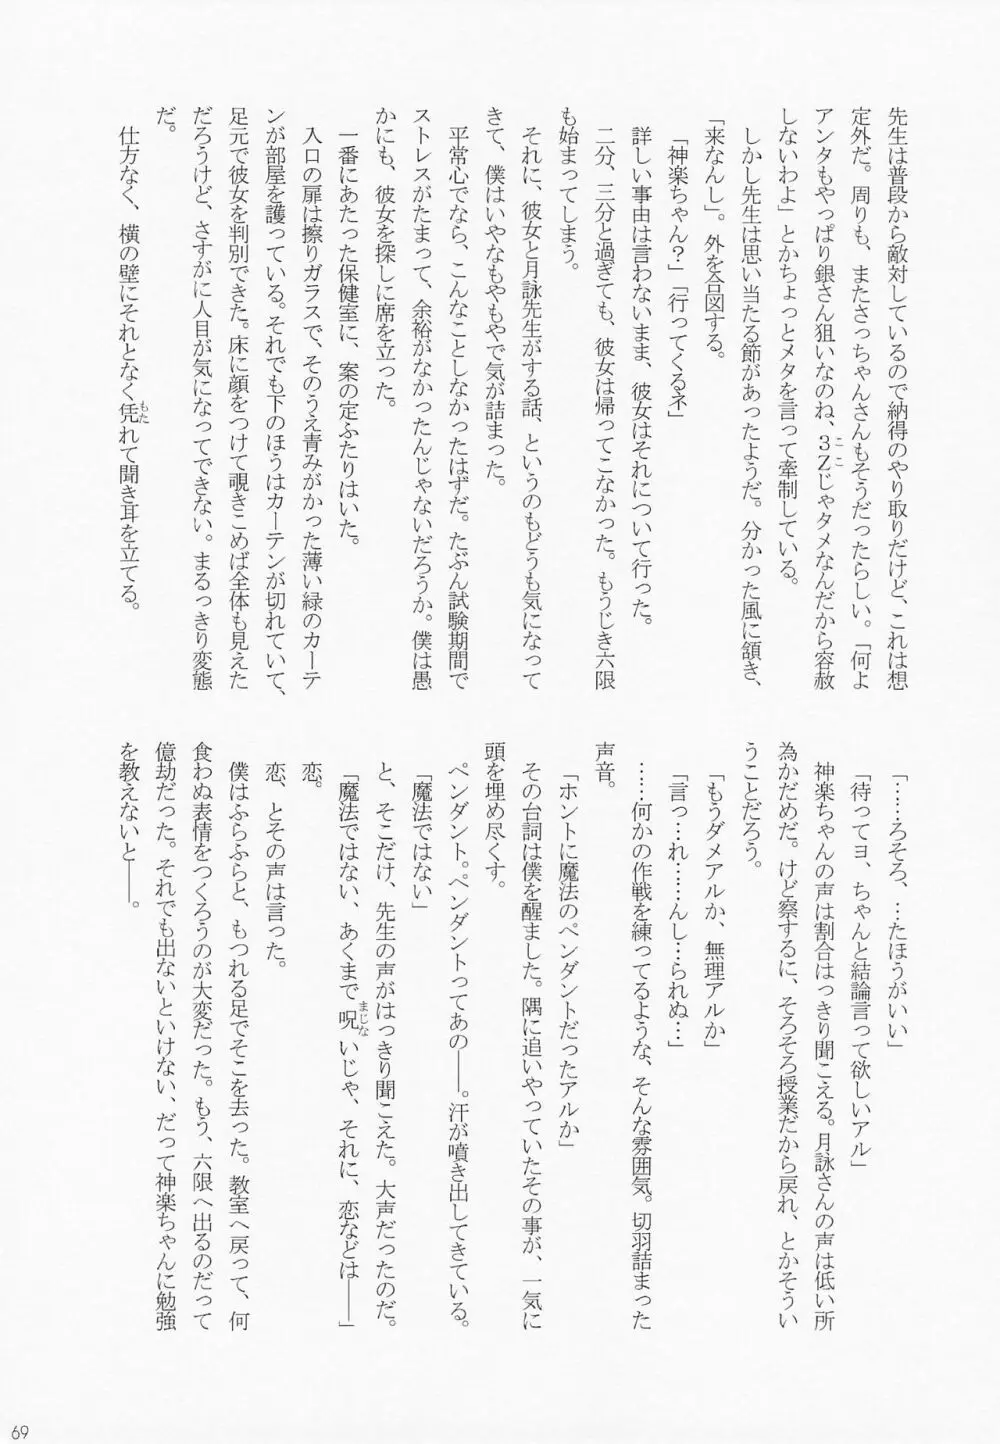 先生は普段から敵対しているので納得のやり取りだけど、これは想
定外だ。周りも、またさっちゃんさんもそうだったらしい。「何よ
アンタもやっぱり銀さん狙いなのね、3Zここじゃタメなんだから容赦
しないわよ」とかちょっとメタを言って牽制している。
しかし先生は思い当たる節があったようだ。分かった風に頷き、
「来なんし」。外を合図する。
「神楽ちゃん?」「行ってくるネ」
詳しい事由は言わないまま、彼女はそれについて行った。
二分、三分と過ぎても、彼女は帰ってこなかった。もうじき六限
も始まってしまう。
それに、彼女と月詠先生がする話、というのもどうも気になって
きて、僕はいやなもやもやで気が詰まった。
平常心でなら、こんなことしなかったはずだ。たぶん試験期間で
ストレスがたまって、余裕がなかったんじゃないだろうか。僕は愚
かにも、彼女を探しに席を立った。
一番にあたった保健室に、案の定ふたりはいた。
入口の扉は擦りガラスで、そのうえ青みがかった薄い緑のカーテ
ンが部屋を護っている。それでも下のほうはカーテンが切れていて、
足元で彼女を判別できた。床に顔をつけて覗きこめば全体も見えた
だろうけど、さすがに人目が気になってできない。まるっきり変態
だ。
仕方なく、横の壁にそれとなく凭もたれて聞き耳を立てる。
「……ろそろ、…たほうがいい」
「待ってヨ、ちゃんと結論言って欲しいアル」
神楽ちゃんの声は割合はっきり聞こえる。月詠さんの声は低い所
為かだめだ。けど察するに、そろそろ授業だから戻れ、とかそうい
うことだろう。
「もうダメアルか、無理アルか」
「言っ…れ……んし…られぬ…」
……何かの作戦を練ってるような、そんな雰囲気。切羽詰まった
声音。
「ホントに魔法のペンダントだったアルか」
その台詞は僕を醒ました。隅に追いやっていたその事が、一気に
頭を埋め尽くす。
ペンダント。ペンダントってあの――。汗が噴き出してきている。
「魔法ではない」
と、そこだけ、先生の声がはっきり聞こえた。大声だったのだ。
「魔法ではない、あくまで呪まじないじゃ、それに、恋などは――」
恋。
恋、とその声は言った。
僕はふらふらと、もつれる足でそこを去った。教室へ戻って、何
食わぬ表情をつくろうのが大変だった。もう、六限へ出るのだって
億劫だった。それでも出ないといけない、だって神楽ちゃんに勉強
を教えないと――。
69